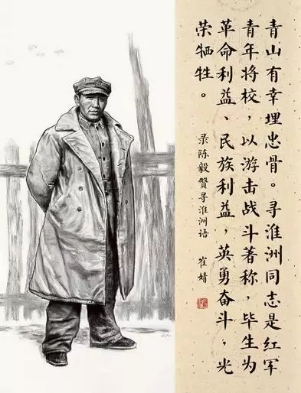 青山有幸埋忠骨。寻淮洲同志是红军
青年将校，以游击战斗著称，毕生为
革命利益、民族利益，英勇奋斗，光
荣牺牲。
录陈毅赞寻淮洲语 崔婧